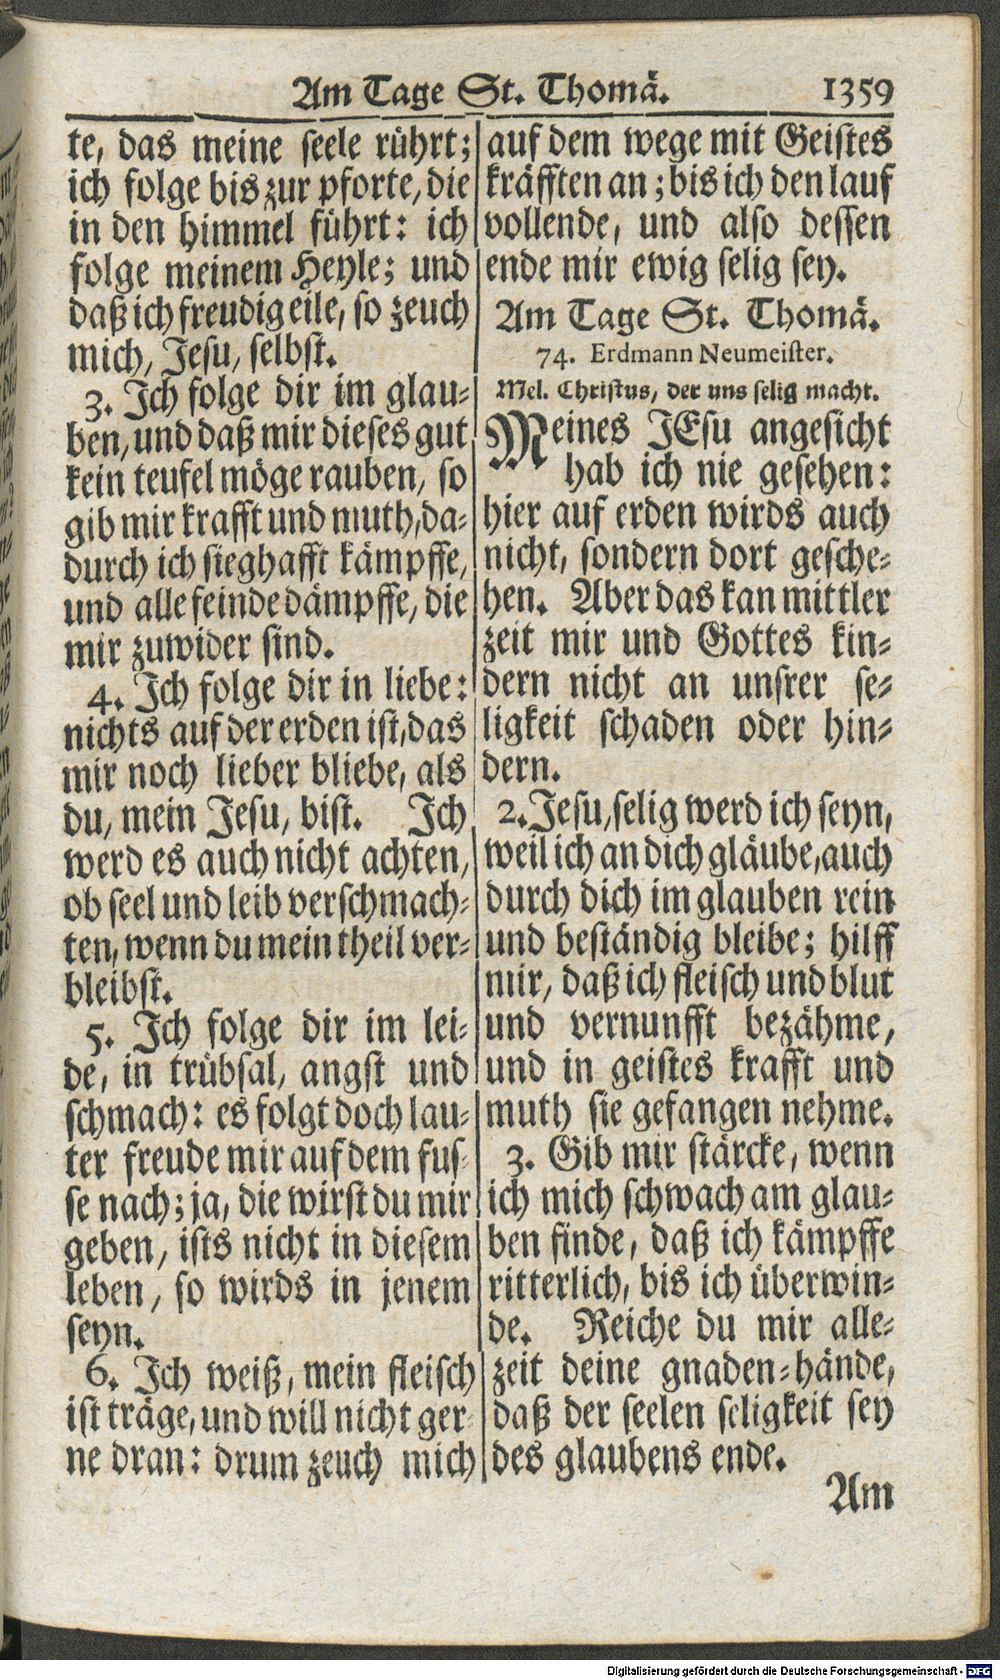 Am Tage St. Thomä. 1359
te, das meine seele rührt;
ich folge bis zur pforte, die
in den himmel führt: ich
folge meinem Heyle; und
daß ich freudig eile, so zeuch
mich, Jesu, selbst.
3. Ich folge dir im glau-
ben, und daß mir dieses gut
kein teufel möge rauben, so
gib mir krafft und muth, da-
durch ich sieghafft kämpffe,
und alle feinde dämpffe, die
mir zuwider sind.
4. Ich folge dir in liebe:
nichts auf der erden ist, das
mir noch lieber bliebe, als
du, mein Jesu, bist. Ich
werd es auch nicht achten,
ob seel und leib verschmach-
ten, wenn du mein theil ver-
bleibst.
5. Ich folge dir im lei-
de, in trübsal, angst und
schmach: es folgt doch lau-
ter freude mir auf dem fus-
se nach; ja, die wirst du mir
geben, ists nicht in diesem
leben, so wirds in jenem
seyn.
6. Ich weiß, mein fleisch
ist träge, und will nicht ger-
ne dran: drum zeuch mich
auf dem wege mit Geistes
kräfften an; bis ich den lauf
vollende, und also dessen
ende mir ewig selig sey.
Am Tage St. Thomä.
74. Erdmann Neumeister.
Mel. Christus, der uns selig macht.
Meines JEsu angesicht
hab ich nie gesehen:
hier auf erden wirds auch
nicht, sondern dort gesche-
hen. Aber das kan mittler
zeit mir und Gottes kin-
dern nicht an unsrer se-
ligkeit schaden oder hin-
dern.
2. Jesu, selig werd ich seyn,
weil ich an dich gläube, auch
durch dich im glauben rein
und beständig bleibe; hilff
mir, daß ich fleisch und blut
und vernunfft bezähme,
und in geistes krafft und
muth sie gefangen nehme.
3. Gib mir stärcke, wenn
ich mich schwach am glau-
ben finde, daß ich kämpffe
ritterlich, bis ich überwin-
de. Reiche du mir alle-
zeit deine gnaden-hände,
daß der seelen seligkeit sey
des glaubens ende.
Am
Digitalisierung gefördert durch die Deutsche Forschungsgemeinschaft - DFG